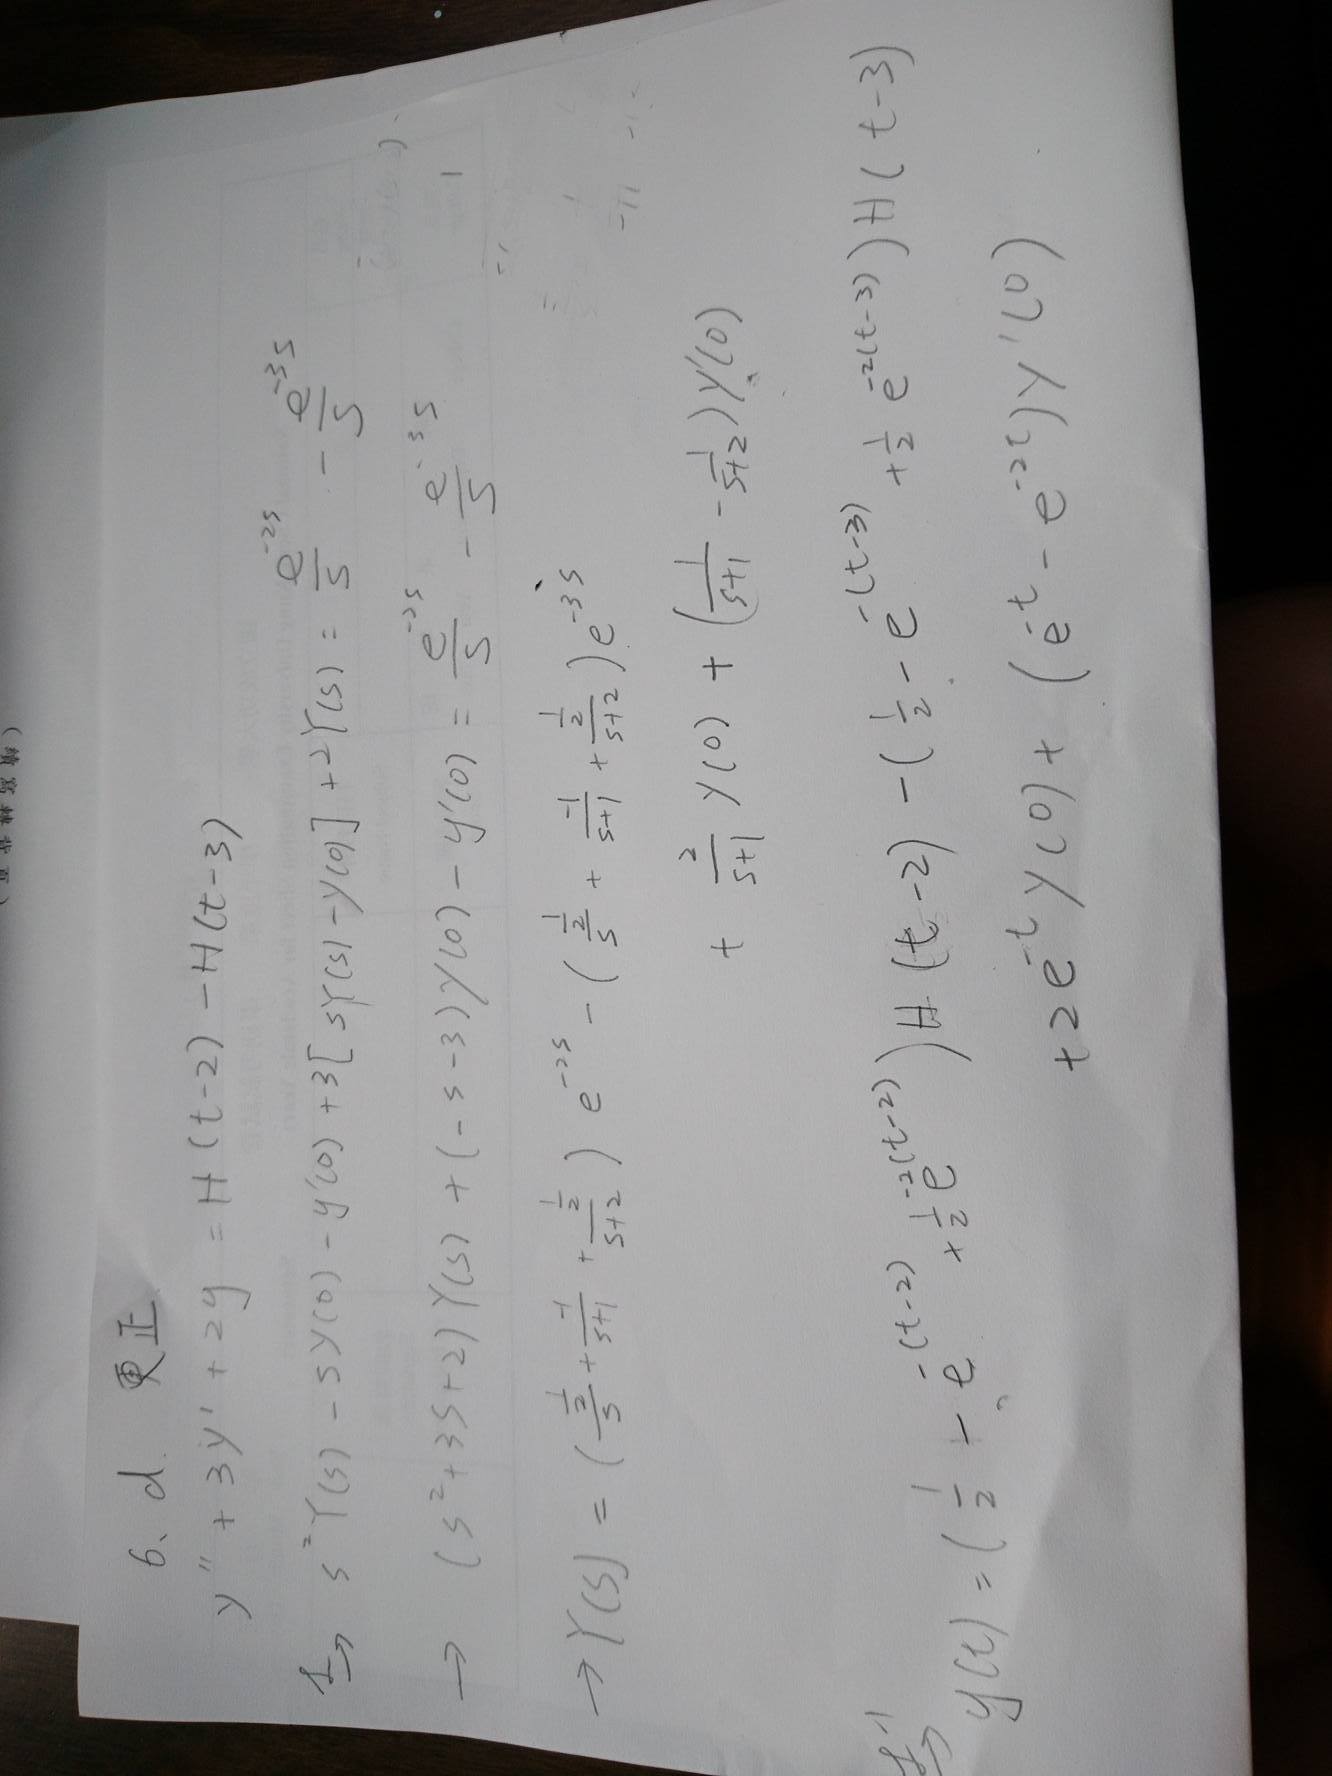 (續寫林背頁)
6、d. 更正
y'' + 3y' + 2y = H(t-2) - H(t-3)
ℒ→ s²Y(s) - sY(0) - y'(0) + 3[sY(s) - y(0)] + 2Y(s) = e^{-2s}/s - e^{-3s}/s
→ (s²+3s+2)Y(s) + (-s-3)Y(0) - y'(0) = e^{-2s}/s - e^{-3s}/s
→ Y(s) = (½/s + -1/(s+1) + ½/(s+2)) e^{-2s} - (½/s + -1/(s+1) + ½/(s+2)) e^{-3s}
+ 2/(s+1) Y(0) + (1/(s+1) - 1/(s+2)) Y'(0)
ℒ⁻¹→ y(t) = (1/2 - e^{-(t-2)} + ½e^{-2(t-2)}) H(t-2) - (½ - e^{-(t-3)} + ½ e^{-2(t-3)}) H(t-3)
+ 2e^{-t} Y(0) + (e^{-t} - e^{-2t}) Y'(0)